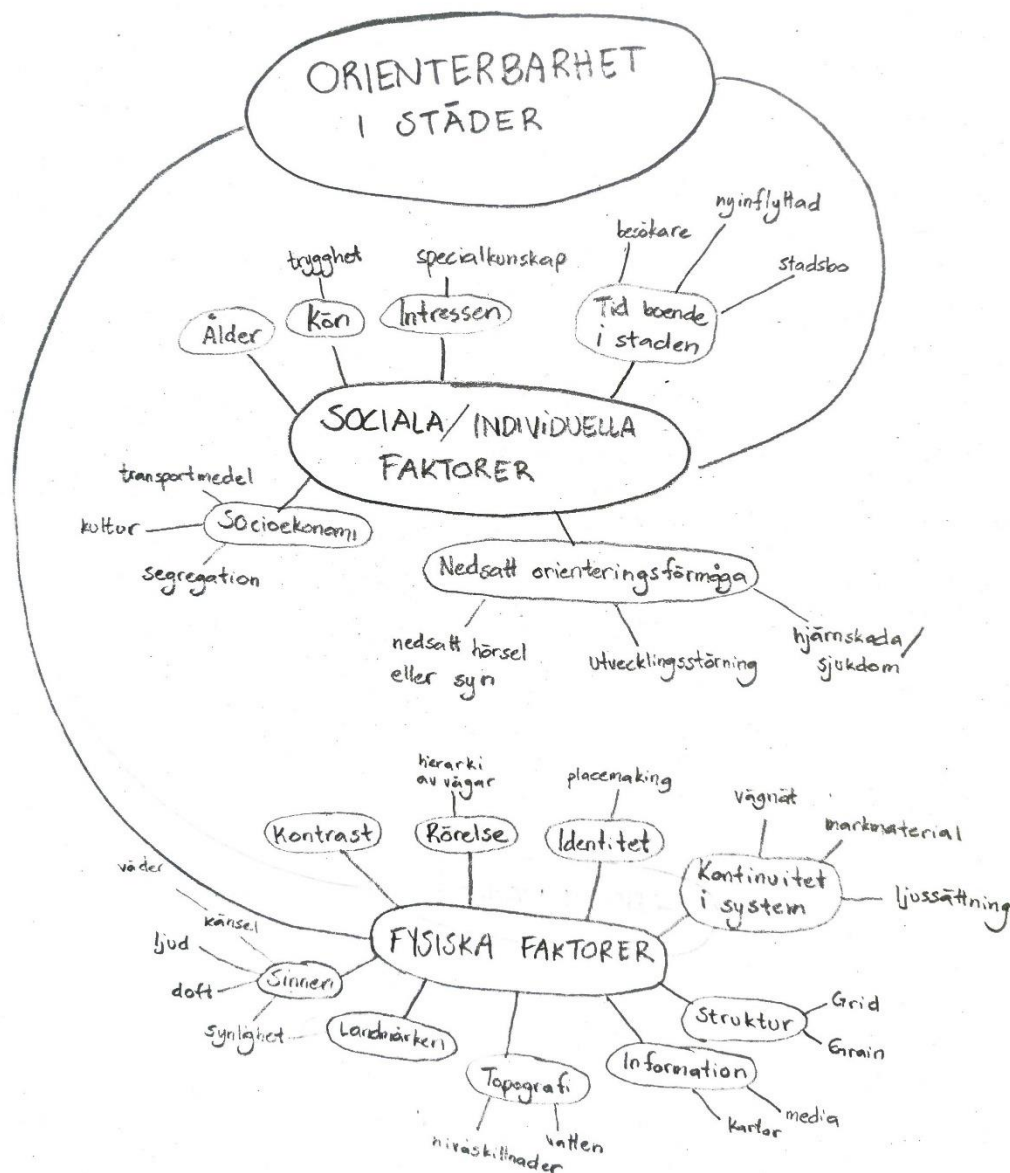 ORIENTERBARHET
I STÄDER
nyinflyttad
besökare
stadsbo
trygghet
specialkunskap
Ålder
Kön
Intressen
Tid boende
i staden
SOCIALA/INDIVIDUELLA
FAKTORER
transportmedel
kultur
Socioekonomi
segregation
Nedsatt orienteringsförmåga
nedsatt hörsel
eller syn
utvecklingsstörning
hjärnskada/
sjukdom
hierarki
av vägar
placemaking
vägnät
markmaterial
Kontrast
Rörelse
Identitet
Kontinuitet
i system
ljussättning
väder
känsel
ljud
doft
Sinnen
synlighet
FYSISKA FAKTORER
Landmärken
Topografi
nivåskillnader
vatten
Information
kartor
media
Struktur
Grid
Grain